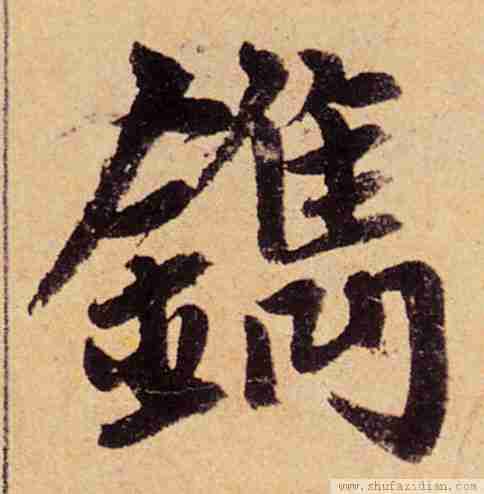 鐫
www.shufazidian.com